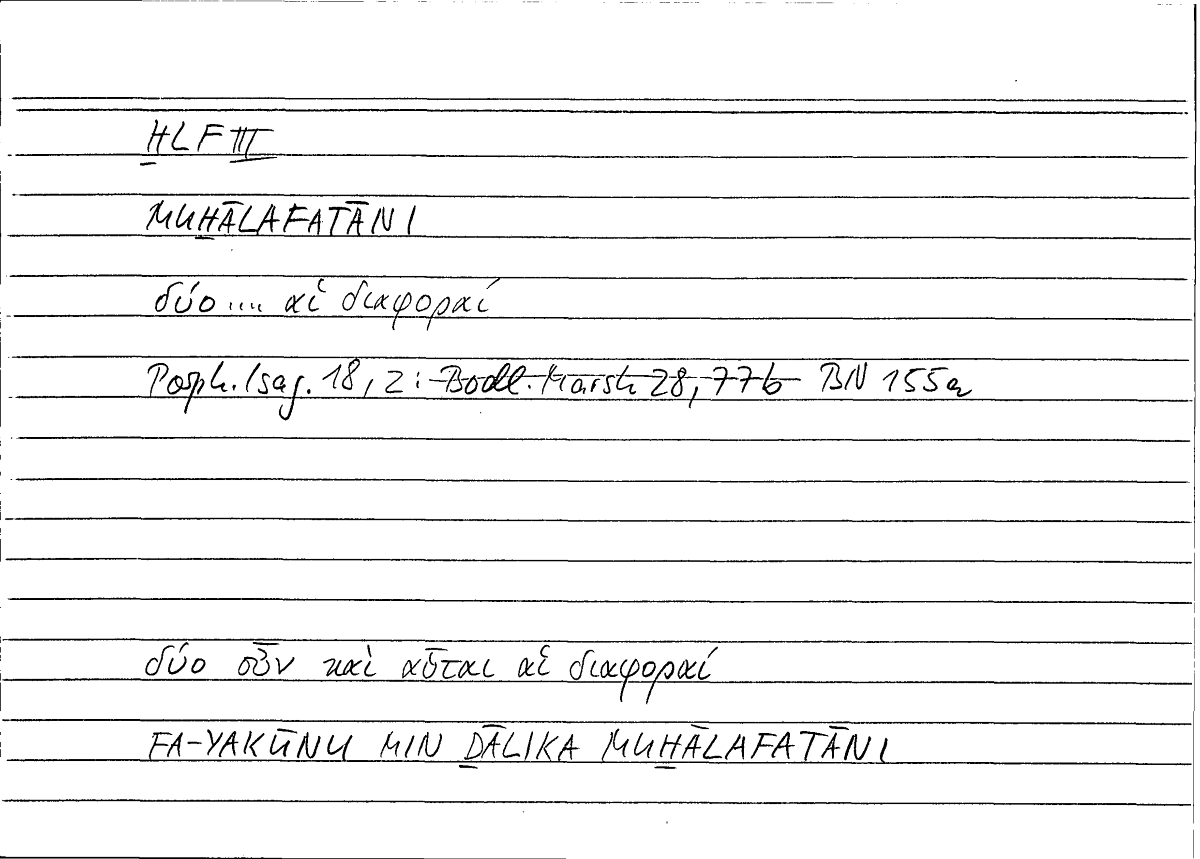 ḪLF III
MUḪĀLAFATĀNI
δύο .... αἱ διαφοραί
Porph. Isag. 18, 2: Bodl. Marsh 28, 77b BN 155a
δύο οὖν καὶ αὗται αἱ διαφοραί
FA-YAKŪNU MIN ḎĀLIKA MUḪĀLAFATĀNI